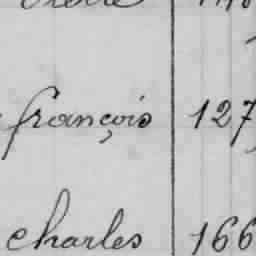 françois 127
charles 166